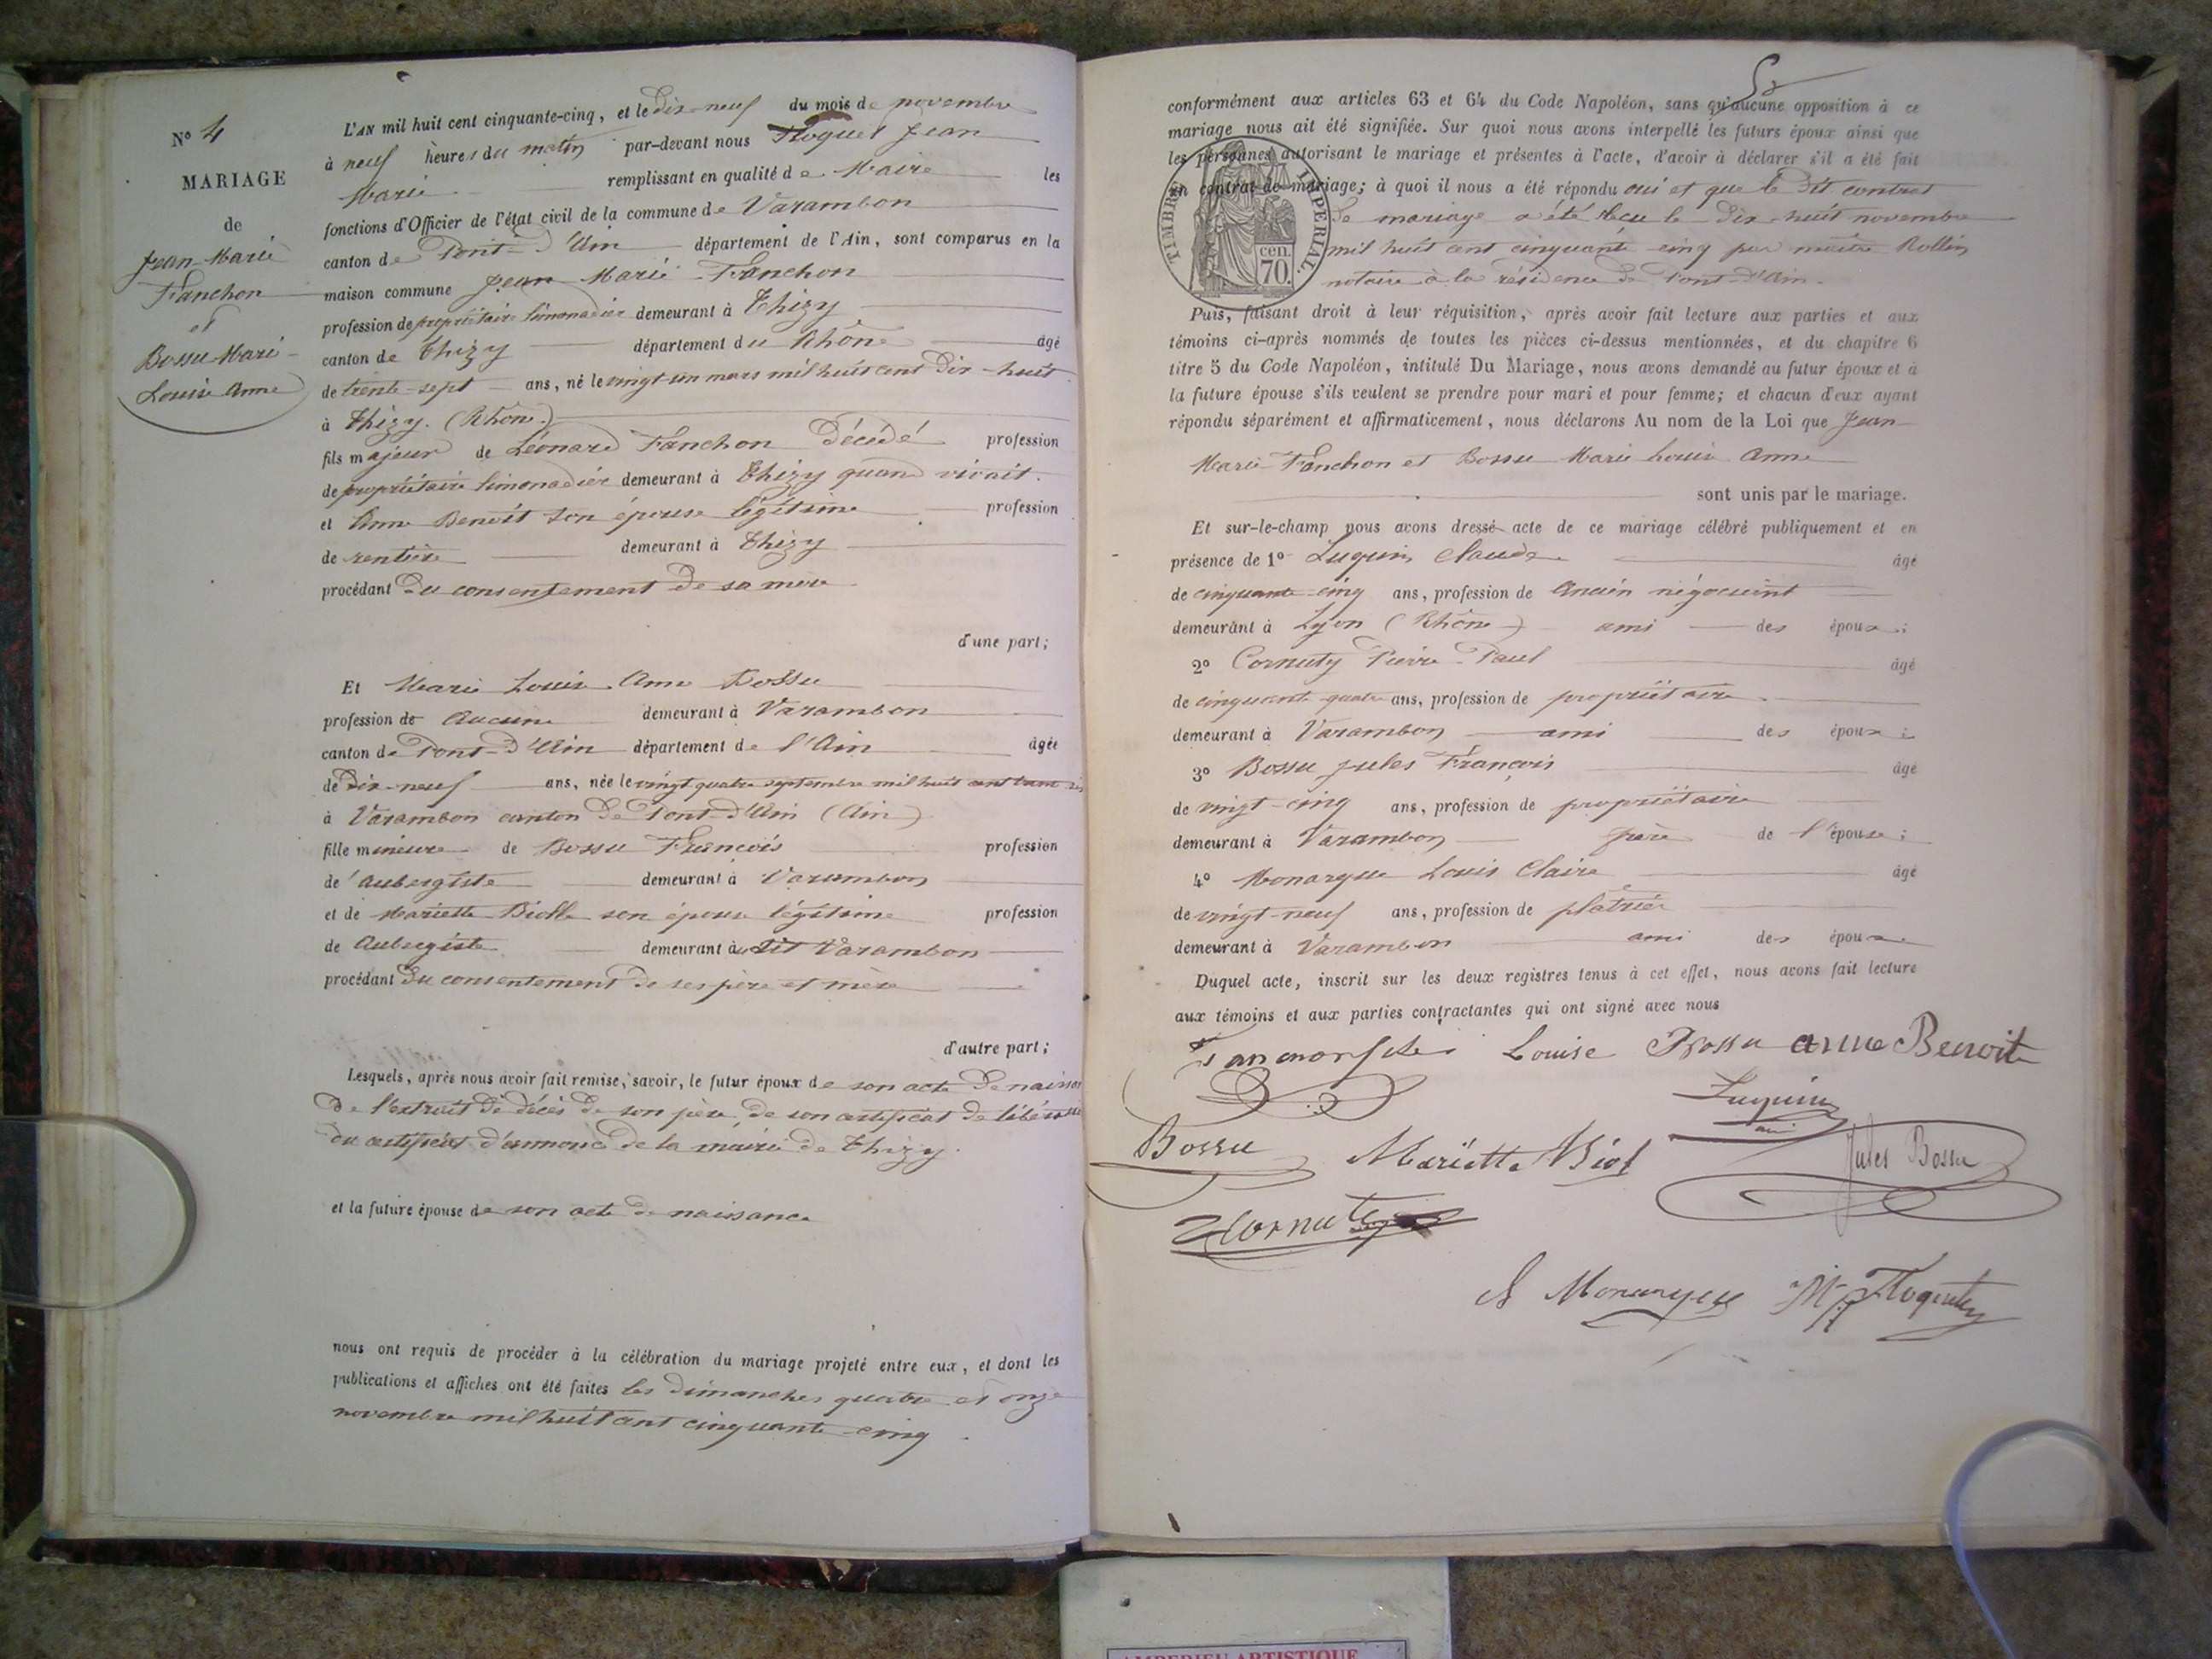 N° 4
MARIAGE
de
Jean-Marie
Fanchon
et
Bossu Marie
Louise Anne
L'AN mil huit cent cinquante-cinq, et le dix-neuf du mois de novembre
à neuf heures du matin par-devant nous Floquet Jean
Marie remplissant en qualité de Maire les
fonctions d'Officier de l'état civil de la commune de Varambon
canton de Pont-d'Ain département de l'Ain, sont comparus en la
maison commune Jean Marie Fanchon
profession de propriétaire limonadier demeurant à Thizy
canton de Thizy département du Rhône âgé
de trente-sept ans, né le vingt-un mars mil huit cent dix-huit
à Thizy. (Rhône)
fils majeur de Léonard Fanchon décédé profession
de propriétaire limonadier demeurant à Thizy quand vivait.
et Anne Benoît son épouse légitime profession
de rentière demeurant à Thizy
procédant du consentement de sa mère
d'une part;
Et Marie Louise Anne Bossu
profession de Aucune demeurant à Varambon
canton de Pont-d'Ain département de l'Ain âgée
de dix-neuf ans, née le vingt quatre septembre mil huit cent trente six
à Varambon canton de Pont-d'Ain (Ain)
fille mineure de Bossu François profession
de aubergiste demeurant à Varambon
et de Mariette Biolle son épouse légitime profession
de Aubergiste demeurant à dit Varambon
procédant du consentement de ses père et mère
d'autre part;
Lesquels, après nous avoir fait remise, savoir, le futur époux de son acte de naissance
de l'extrait de décès de son père, de son certificat de libération
du certificat d'annonce de la mairie de Thizy.
et la future épouse de son acte de naissance
nous ont requis de procéder à la célébration du mariage projeté entre eux, et dont les
publications et affiches ont été faites les dimanches quatre et onze
novembre mil huit cent cinquante-cinq.
conformément aux articles 63 et 64 du Code Napoléon, sans qu'aucune opposition à ce
mariage nous ait été signifiée. Sur quoi nous avons interpellé les futurs époux ainsi que
les personnes autorisant le mariage et présentes à l'acte, d'avoir à déclarer s'il a été fait
un contrat de mariage; à quoi il nous a été répondu oui et que le dit contrat
de mariage a été reçu le dix-huit novembre
mil huit cent cinquante-cinq par maître Rollin
notaire à la résidence de Pont-d'Ain.
TIMBRE IMPERIAL.
70 cen.
Puis, faisant droit à leur réquisition, après avoir fait lecture aux parties et aux
témoins ci-après nommés de toutes les pièces ci-dessus mentionnées, et du chapitre 6
titre 5 du Code Napoléon, intitulé Du Mariage, nous avons demandé au futur époux et à
la future épouse s'ils veulent se prendre pour mari et pour femme; et chacun d'eux ayant
répondu séparément et affirmativement, nous déclarons Au nom de la Loi que Jean
Marie Fanchon et Bossu Marie Louise Anne
sont unis par le mariage.
Et sur-le-champ nous avons dressé acte de ce mariage célébré publiquement et en
présence de 1° Luquin Claude âgé
de cinquante-cinq ans, profession de Ancien négociant
demeurant à Lyon (Rhône) ami des époux;
2° Cornuty Pierre-Paul âgé
de cinquante-quatre ans, profession de propriétaire
demeurant à Varambon ami des époux;
3° Bossu Jules François âgé
de vingt-cinq ans, profession de propriétaire
demeurant à Varambon frère de l'épouse;
4° Monarque Louis Claire âgé
de vingt-neuf ans, profession de plâtrier
demeurant à Varambon ami des époux
Duquel acte, inscrit sur les deux registres tenus à cet effet, nous avons fait lecture
aux témoins et aux parties contractantes qui ont signé avec nous
Louise Bossu anne Benoit
Luquin
Bossu Mariette Biol Jules Bossu
Cornuty
Monarque
AMBERIEU ARTISTIQUE